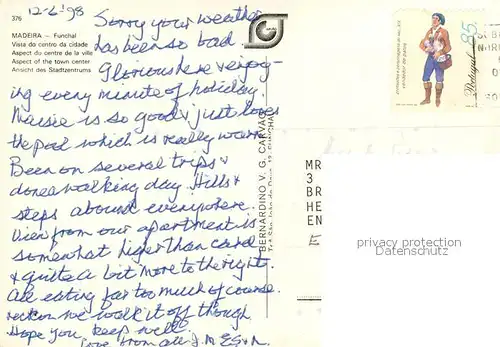 12-6-98
376
MADEIRA – Funchal
Vista do centro da cidade
Aspect du centre de la ville
Aspect of the town center
Ansicht des Stadtzentrums
Sorry your weather
has been so bad.
Glorious here & enjoy-
ing every minute of holiday.
Maisie is so good & just loves
the pool which is really warm
Been on several trips &
done a walking day. Hills &
steps abound everywhere.
View from our apartment is
somewhat higer than card
& quite a bit more to the right.
All eating far too much of course
reckon we walk it off though
Hope you keep well
Love from all J.M
BERNARDINO V. G. CARVÃO
85.
Portugal
MR
3
BR
HE
EN
E
privacy protection
Datenschutz